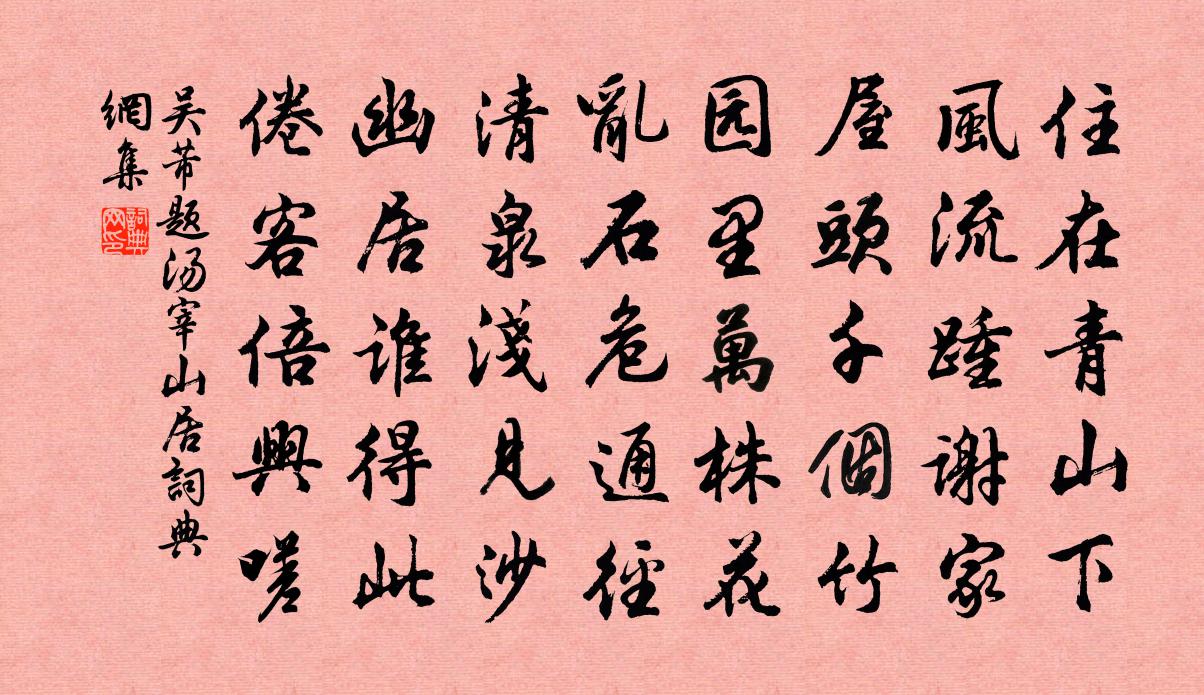 住在青山下
風流踵谢家
屋頭千個竹
园里萬株花
亂石危通徑
清泉淺見沙
幽居誰得此
倦客倍興嗟
吴芾题汤宰山居詞典
網集
詞典網印